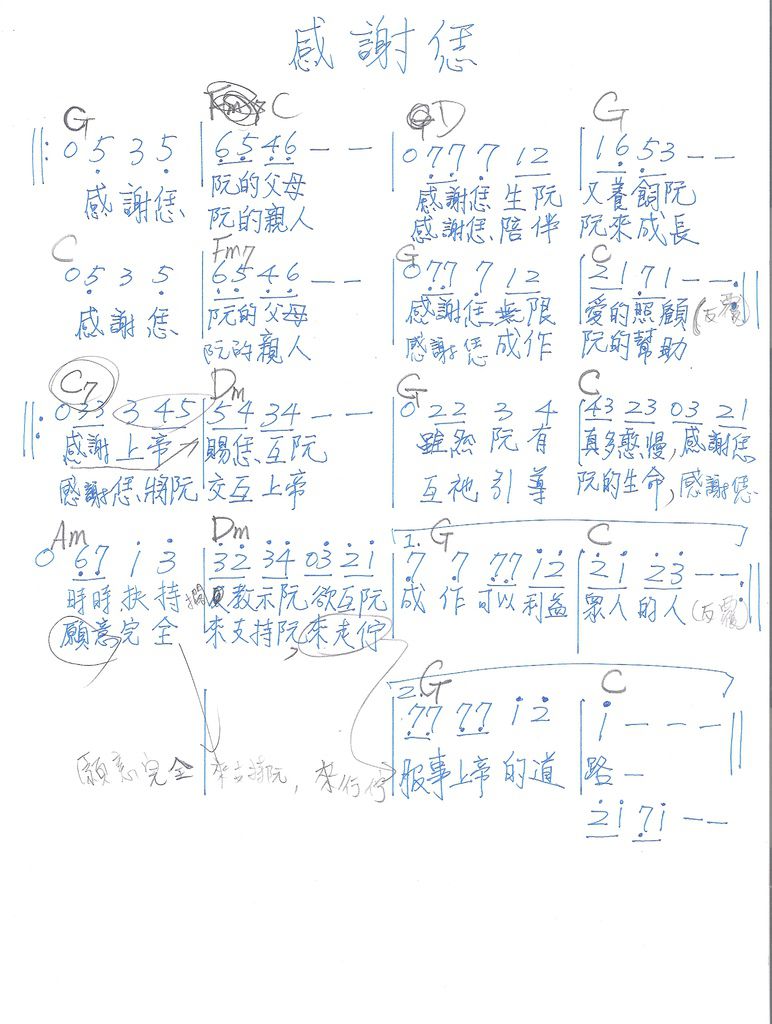 感謝恁
G C D G
‖: 0 5 3 5 | 6 5 4 6 — — | 0 7 7 7 1 2 | 1 6 5 3 — —
感謝恁 阮的父母 感謝恁 生阮 又養飼阮
阮的親人 感謝恁 陪伴 阮來成長
C Fm7 G C
0 5 3 5 | 6 5 4 6 — — | 0 7 7 7 1 2 | 2 1 7 1 — — :‖
感謝恁 阮的父母 感謝恁 無限 愛的照顧 (反覆)
阮的親人 感謝恁 成作 阮的幫助
C7 Dm G C
‖: 0 3 3 3 4 5 | 5 4 3 4 — — | 0 2 2 3 4 | 4 3 2 3 0 3 2 1
感謝上帝 賜恁互阮 雖然阮有 真多憨慢,感謝恁
感謝恁將阮 交互上帝 互祂引導 阮的生命,感謝恁
Am Dm 1. G C
0 6 7 1 3 | 3 2 3 4 0 3 2 1 | 7 7 7 7 1 2 | 2 1 2 3 — — :‖
時時扶持 教示阮欲互阮 成作可以利益 眾人的人 (反覆)
願意完全 來支持阮,來走佇
2. G C
7 7 7 7 1 2 | 1 — — — ‖
願意完全 來支持阮,來行佇 服事上帝的道 路 —
2 1 7 1 — —